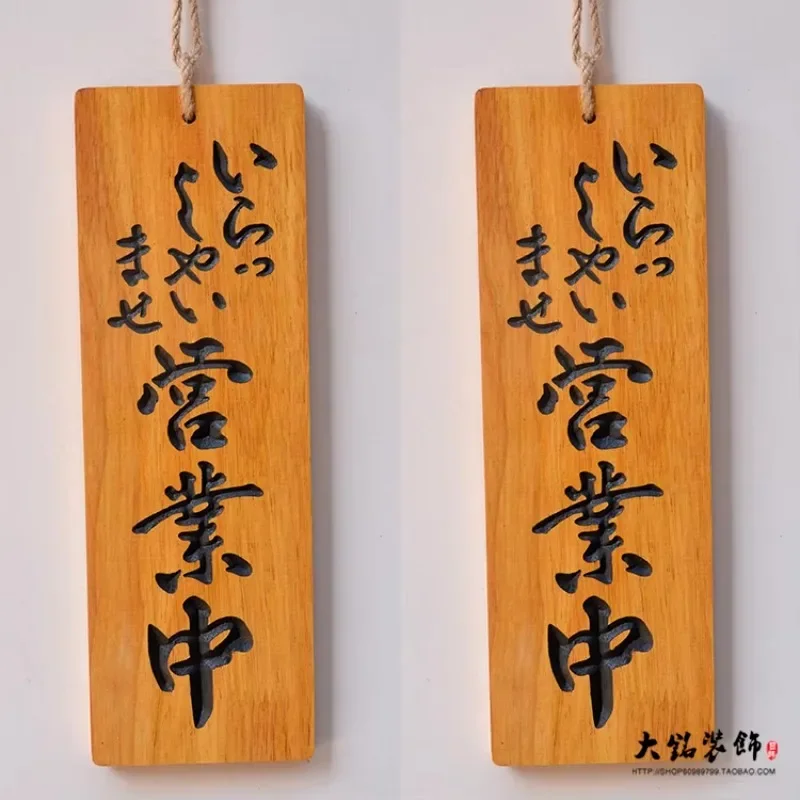 いらっ
しやい
ませ
営業中
いらっ
しやい
ませ
営業中
大銘装飾
HTTP://SHOP60969799.TAOBAO.COM